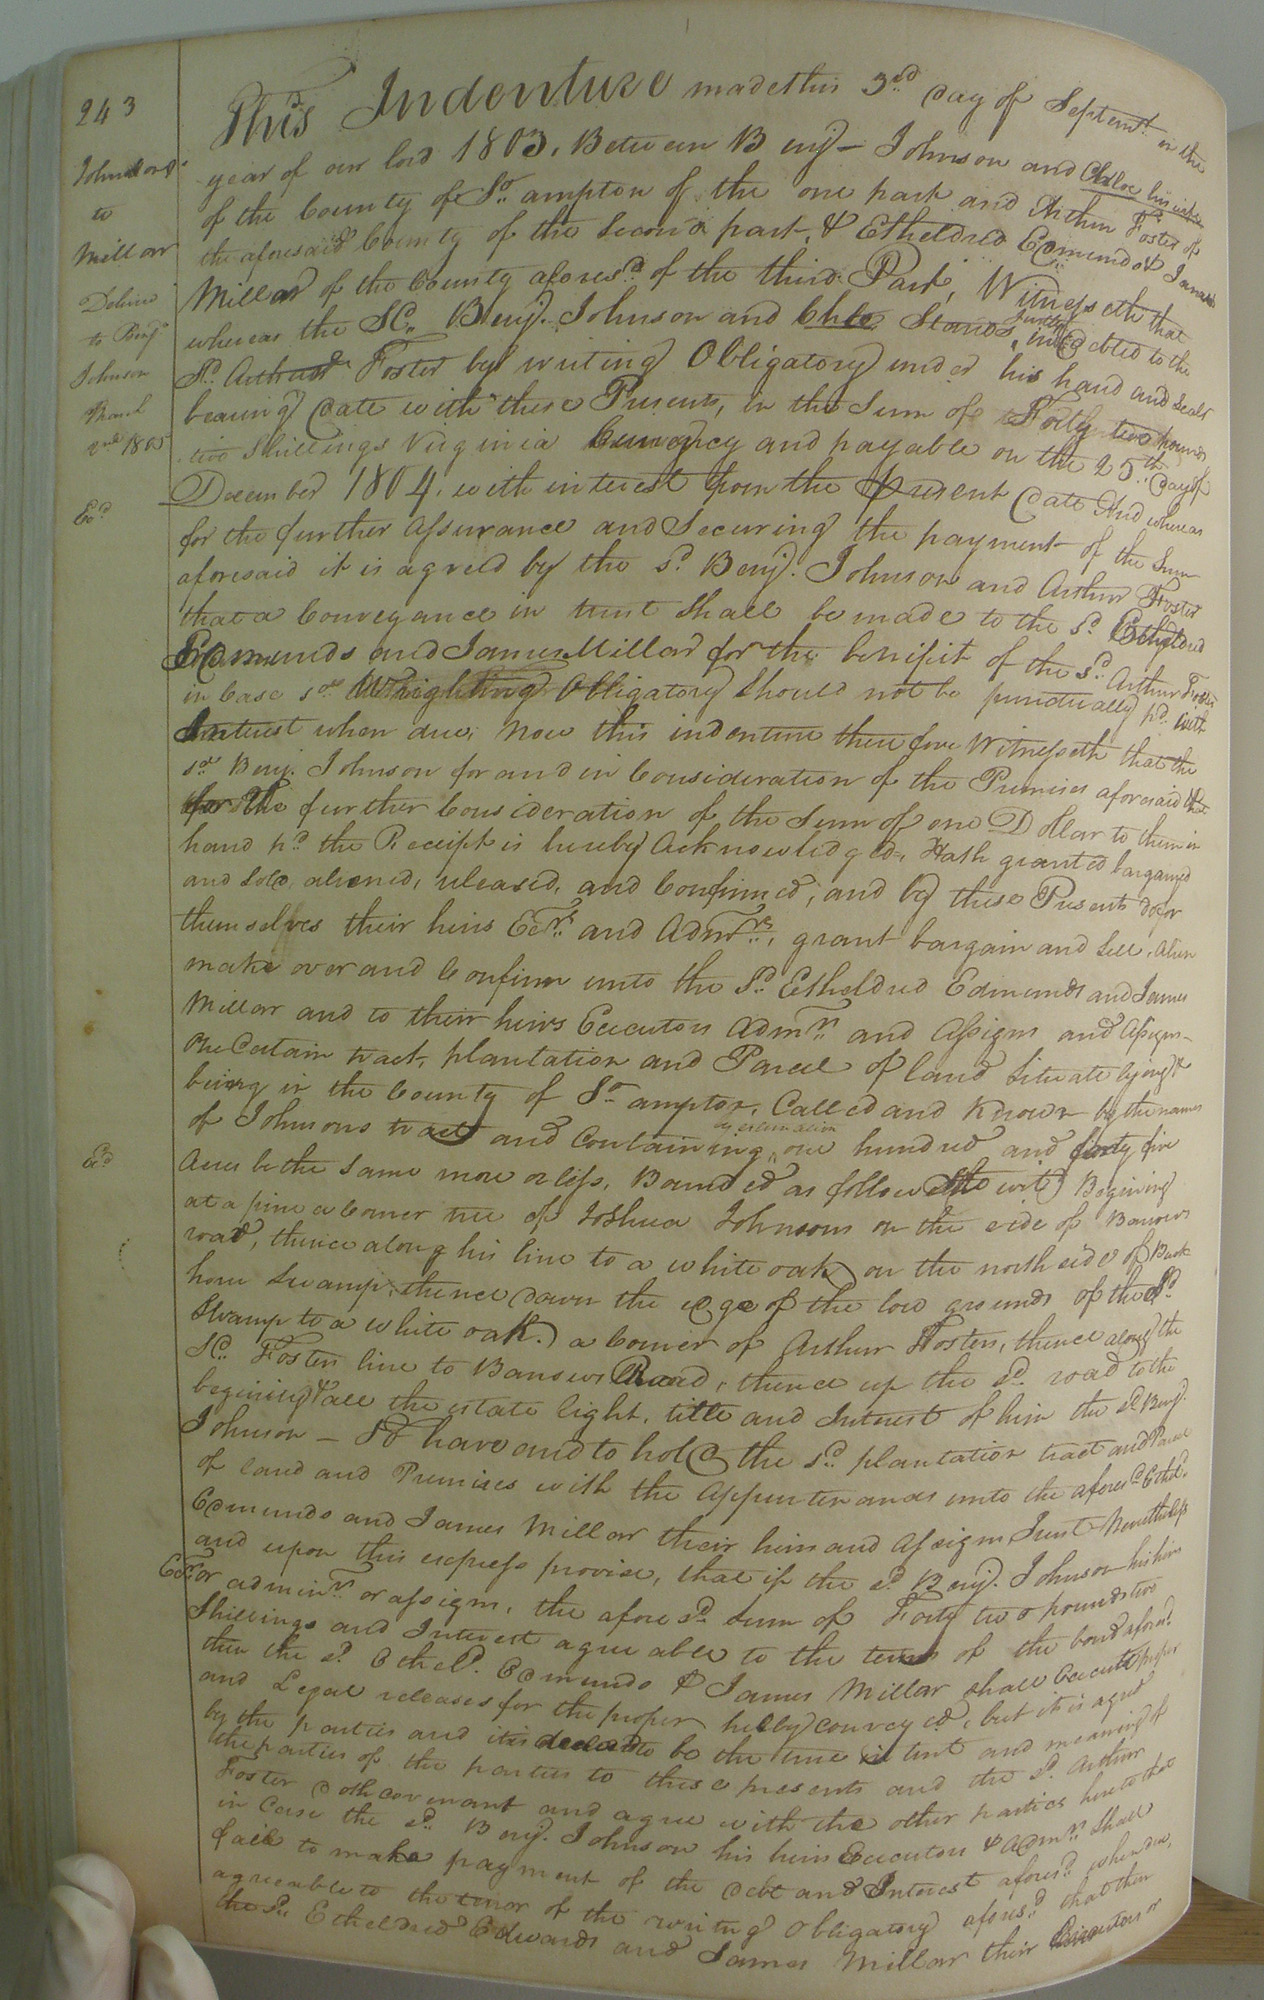 243
Johnsons
to
Millar
Deliver'd
to Benj.
Johnson
March
2nd 1805
Ex.d
Ex.d
This Indenture made this 3rd day of Septemr. in the
year of our lord 1803. Between Benj- Johnson and Chloe his wife
of the County of So. ampton of the one part and Arthur Foster of
the aforesaid County of the Second part, & Etheldred Edmunds & James
Millar of the County aforesd. of the third Part, Witnesseth that
whereas the Sd. Benj. Johnson and Chloe Stands justly indebted to the
Sd. Arthur Foster by writing Obligatory under his hand and Seal
bearing date with these Presents, in the Sum of Forty two pounds
two Shillings Virginia Currency and payable on the 25th. day of
December 1804. with interest from the present date And whereas
for the further assurance and Securing the payment of the Sum
aforesaid it is agreed by the sd. Benj. Johnson and Arthur Foster
that a Conveyance in trust Shall be made to the Sd. Etheldred
Edmunds and James Millar for the benifit of the sd. Arthur Foster
in Case sd. Wrighting Obligatory Should not be punctually pd. with
Interest when due, Now this indenture therefore Witnesseth that the
sd. Benj. Johnson for and in Consideration of the Premises aforesaid &
for the further Consideration of the Sum of one Dollar to them in
hand pd. the Receipt is hereby Acknowledged, Hath granted bargained
and Sold, aliened, released, and Confirmed, and by these Presents do for
themselves their heirs Exrs. and Admrs., grant bargain and Sell, alien
make over and Confirm unto the Sd. Etheldred Edmunds and James
Millar and to their heirs Executors Admrs. and Assigns and Assigns-
One Certain tract, plantation and Parcel of land Situate lying &
being in the County of So. ampton, Called and Known by the names
of Johnsons tract and Containing by estimation one hundred and forty five
Acres be the Same more or less, Bounded as follows (to wit) Begining
at a pine a Corner tree of Joshua Johnsons on the side of Barrows
road, thence along his line to a white oak on the north side of Buck
horn Swamp, thence down the edge of the low grounds of the Sd.
Swamp to a white oak. a Corner of Arthur Fosters, thence along the
Sd. Fosters line to Barrows Road, thence up the sd. road to the
begining & all the estate light, title and Interest of him the sd. Benj.
Johnson - To have and to hold the sd. plantation tract and Parcel
of land and Premises with the Appurtenances unto the aforesd. Etheld.
Edmunds and James Millar their heirs and Assigns Trust Nevertheless
and upon this express proviso, that if the sd. Benj. Johnson his heirs
Exr. or adminrs. or assigns, the aforesd. Sum of Forty two pounds two
Shillings and Interest agreeable to the tenor of the bond aforesd.
then the sd. Etheld. Edmunds & James Millar shall execute proper
and Legal releases for the proper hereby conveyed, but it is agreed
by the parties and it is declared to be the true intent and meaning of
the parties of the parties to these presents and the sd. Arthur
Foster doth covenant and agree with the other parties hereto that
in Case the sd. Benj. Johnson his heirs Executors & Admrs. Shall
fail to make payment of the debt and Interest aforesd. when due,
agreeable to the tenor of the writing Obligatory aforesd. that then
the Sd. Etheldred Edwards and James Millar their Executors or